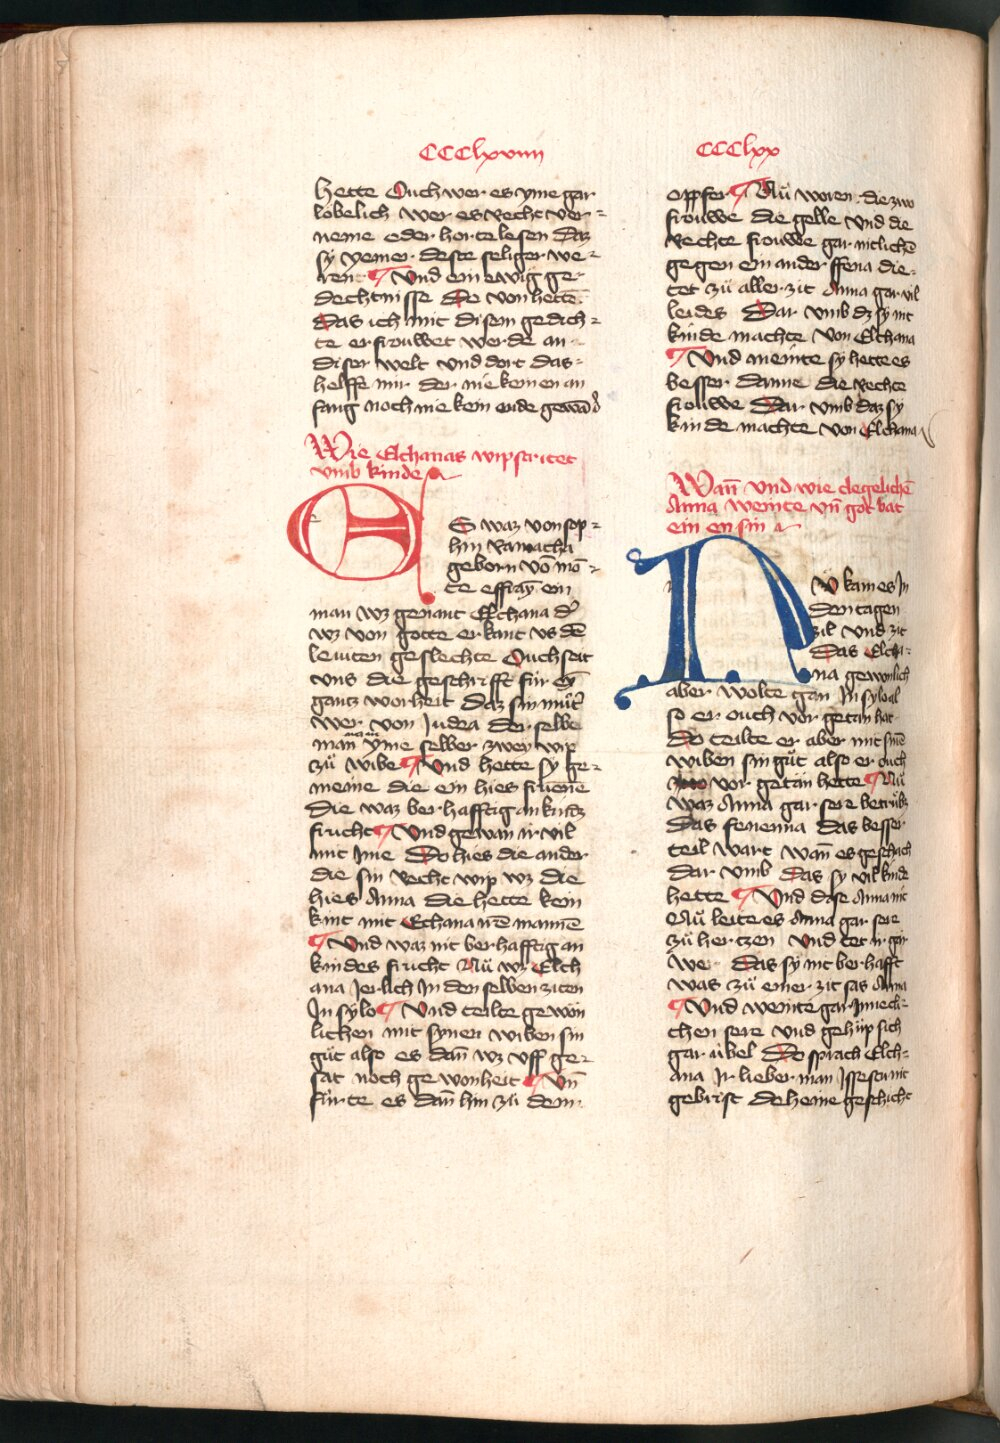 CCClxviiii
hette Ouch wer es yme gar
lobelich wer es recht ver=
neme oder horte lesen daz
sy yemer deste seliger we=
rent ¶ Und ein ewig ge=
dechtnisse De von hette
Das ich mit disem gedich=
te erfrouwet werde an
diser welt und dort das
helffe mir der nie keinen an
fang noch nie kein ende gewan
Wie Elchanas wip stritet
umb kinde
ES waz von sop=
him Ramacha
geborn vō mō=
te effraȳ ein
man wz genant Elchana d'
wz von gotte erkant us dē
leuiten geslechte Ouch seit
uns die geschrifft für ey
gantz worheit Daz sin mut'
wer von Judea der selbe
man nam yme selber zwey wip
zů wibe ¶ Und hette sy ge=
meine die ein hies fenene
die waz berhafftig an kindz
frucht ¶ Und gewan ir vil
mit ime Do hies die ander
die sin recht wip wz die
hies Anna die hette kein
kint mit Elchana irē mannē
¶ Und waz nit berhafftig an
kindes frucht Nů wz Elch
ana Jerlich In den selben ziten
In sylo ¶ Und teilte gewon
lichen mit synen wiben sin
gůt also es dañ wz uff ge=
sat noch gewonheit ¶ Uñ
fůrte es dañ hin zů dem
CCClxx
opffer ¶ Nů woren die zwo
frouwe die gelle und de
rechte frouwe gar nitlichē
gegen ein ander ffena die
tet zů aller zit Anna gar vil
leides Dar umb dz sy nit
kinde machte von Elchana
¶ Und meinte sy hette es
besser danne die rechte
frouwe Dar umb daz sy
kinde machte von Elchana
Wañ und wie clegelichē
Anna weinte uñ got bat
ein en sun
NU kam es In
den tagen
zil und zit
Das Elcha=
na gewonlich
aber wolte gan In syloal
so er ouch vor getan hat
Do teilte er aber mit sinē
wiben sin gůt also er ouch
vor getan hette ¶ Nů
waz Anna gar sere betrůbt
Das fenenna das besser
teil wart wañ es geschach
dar umb Das sy vil kinde
hette ¶ Und dise Anna nit
Nů leite es Anna gar sere
zů hertzen Und tet ir gar
we Das sy nit berhafft
was zů einer zit sas Anna
¶ Und weinte gar Jnnecli=
chen sere und gehůp sich
gar übel Do sprach Elch=
ana Ir lieber man Issestu nit
gebrist deheine geschicht